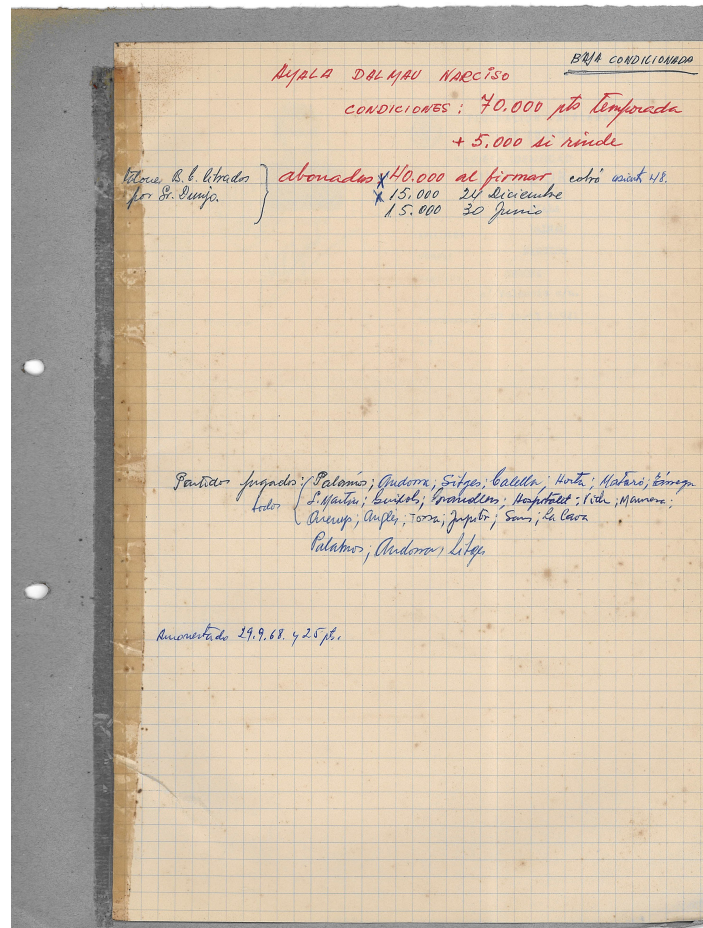 BAJA CONDICIONADO
AYALA DALMAU NARCISO
CONDICIONES: 70.000 pts temporada
+ 5.000 si rinde
B. C. librados
por Sr.
abonadas x 40.000 al firmar cobró asiento 48.
x 15.000 24 Diciembre
15.000 30 Junio
Partidos jugados: Palamós; Andorra; Sitges; Calella; Horta; Mataró; Tárrega
todos S. Martín; Guixols; Granollers; Hospitalet; Vich; Manresa;
Anglés; Tossa; Júpiter; Sans; La Cava
Palamos; Andorra; Sitges
Amonestado 29.9.68. y 25 pts.